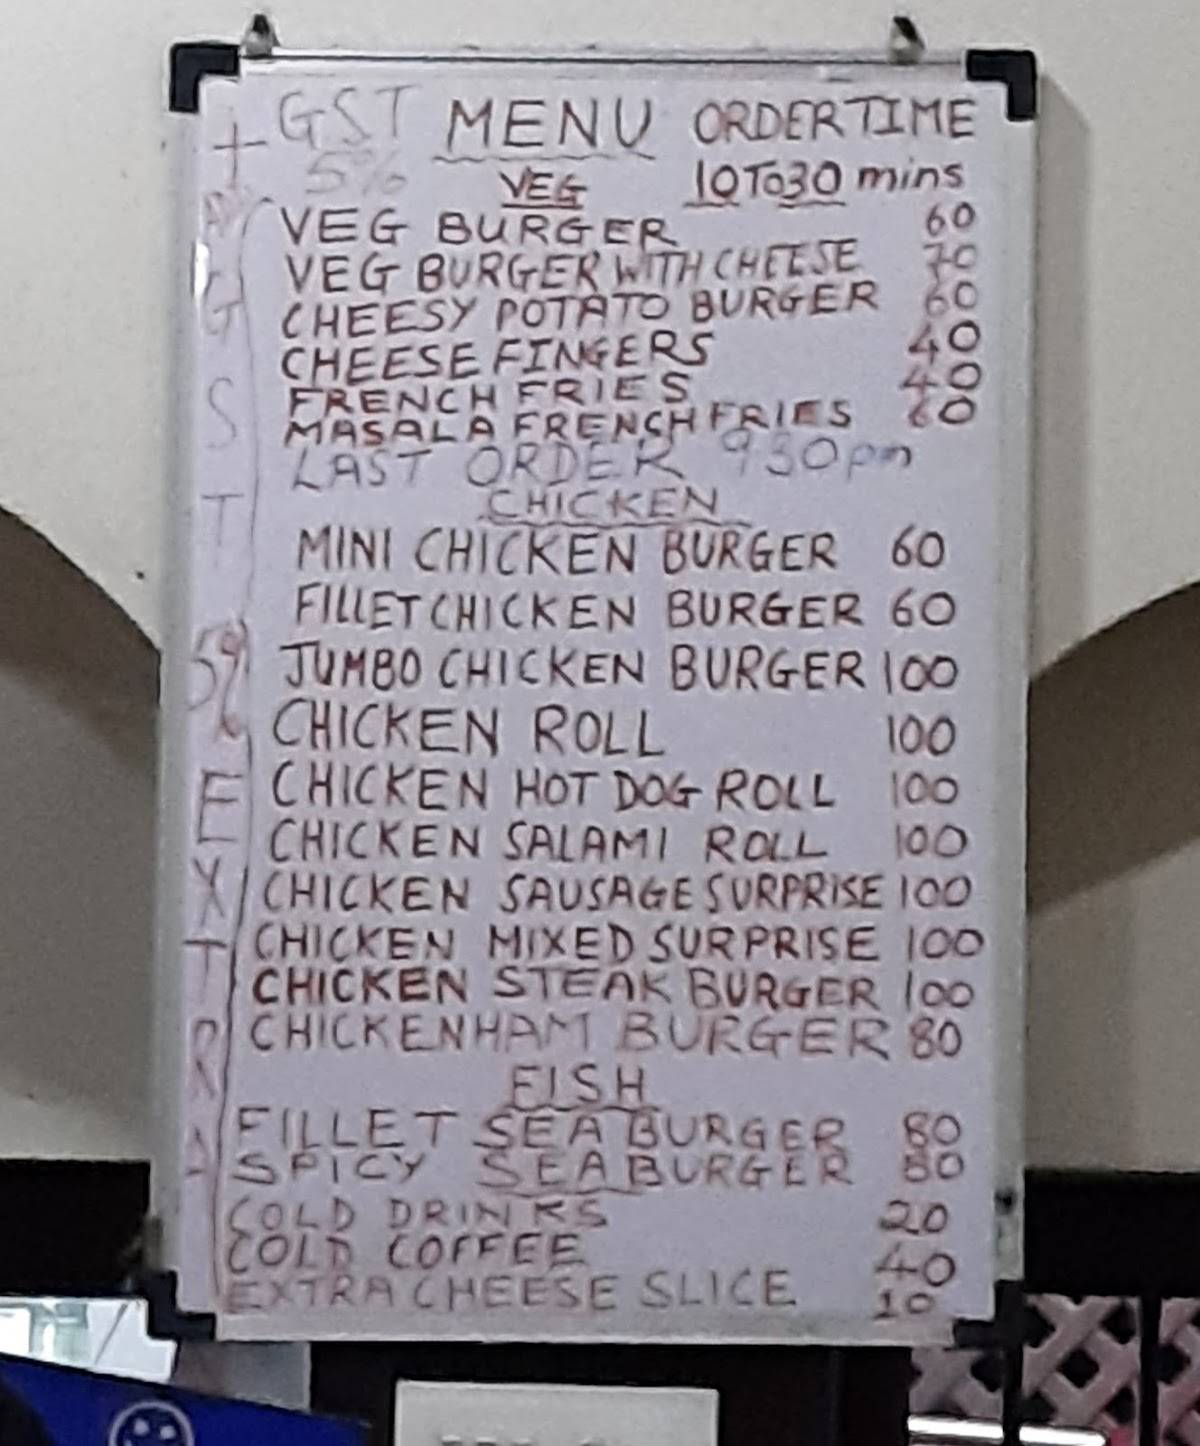 + GST MENU ORDER TIME
5% VEG 10 TO 30 mins
VEG BURGER 60
VEG BURGER WITH CHEESE 70
CHEESY POTATO BURGER 60
CHEESE FINGERS 40
FRENCH FRIES 40
MASALA FRENCH FRIES 60
LAST ORDER 930pm
CHICKEN
MINI CHICKEN BURGER 60
FILLET CHICKEN BURGER 60
JUMBO CHICKEN BURGER 100
CHICKEN ROLL 100
CHICKEN HOT DOG ROLL 100
CHICKEN SALAMI ROLL 100
CHICKEN SAUSAGE SURPRISE 100
CHICKEN MIXED SURPRISE 100
CHICKEN STEAK BURGER 100
CHICKEN HAM BURGER 80
FISH
FILLET SEA BURGER 80
SPICY SEA BURGER 80
COLD DRINKS 20
COLD COFFEE 40
EXTRA CHEESE SLICE 10
GST 5% EXTRA